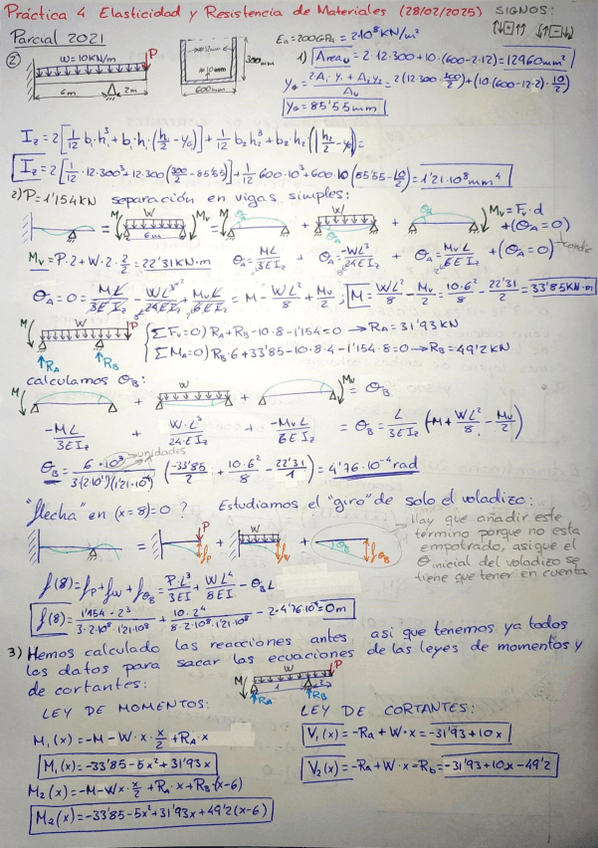 Práctica 4 Elasticidad y Resistencia de Materiales (28/02/2025) SIGNOS:
Parcial 2021
Ea=200GPa = 2·10⁸KN/m²
② W=10KN/m P
6m 2m
300mm
10mm
600mm
1) Area = 2·12·300+10·(600-2·12)=12960mm²
Y_G = (2A₁·Y₁+A₂Y₂)/A_u = (2(12·300·300/2)+(10·(600-12·2)·10/2)
Y_G=85'55mm
I_z=2[1/12 b₁·h₁³+b₁·h₁(h₁/2-y_G)]+1/12 b₂h₂³+b₂·h₂(|h₂/2-y_G|)=
I_z=2[1/12·12·300³+12·300(300/2-85'55)]+1/12 600·10³+600·10(85'55-10/2)=1'21·10⁸mm⁴
2) P=1'154KN separación en vigas simples:
M W Mv = M + W + Mv=Fv·d
6m
+(θA=0)
Mv=P·2+W·2·2/2=22'31KN·m θA=ML/3EI + θA=-WL³/24EIz + θA=MvL/6EIz +(θA=0) condic
θA=0=ML/3EIz-WL³/24EIz+MvL/6EIz=M-WL²/8+Mv/2; M=WL²/8-Mv/2=10·6²/8-22'31/2=33'85KN·m
M W P
RA RB
ΣFv=0) RA+RB-10·8-1'154=0→RA=31'93KN
ΣMA=0) RB·6+33'85-10·8·4-1'154·8=0→RB=49'2KN
calculamos θB:
M + W + Mv = θB
-ML/3EIz + W·L³/24·EIz + -MvL/6EIz = θB=L/3EIz(-M+WL²/8-Mv/2)
θB=6·10³/3·(2·10⁸)(1'21·10⁸) (-33'85/2+10·6²/8-22'31/1)=4'76·10⁻⁴rad
unidades
"flecha" en (x=8)=0? Estudiamos el "giro" de solo el voladizo:
= P fP + W f + θB fθB
Hay que añadir este
termino porque no esta
empotrado, asi que el
θ inicial del voladizo se
tiene que tener en cuenta
f(8)=fP+fW+fθB=P·L³/3EI+WL⁴/8EI-θBL
f(8)=1'154·2³/3·2·10⁸·1'21·10⁸+10·2⁴/8·2·10⁸·1'21·10⁸-2·4'76·10⁻⁴=0m
3) Hemos calculado las reacciones antes asi que tenemos ya todos
los datos para sacar las ecuaciones de las leyes de momentos y
de cortantes:
W P
1 2
RA RB
LEY DE MOMENTOS:
M₁(x)=-M-W·x·x/2+RA·x
M₁(x)=-33'85-5x²+31'93x
M₂(x)=-M-Wx·x/2+RA·x+RB·(x-6)
M₂(x)=-33'85-5x²+31'93x+49'2(x-6)
LEY DE CORTANTES:
V₁(x)=-RA+W·x=-31'93+10x
V₂(x)=-RA+W·x-Rb=-31'93+10x-49'2